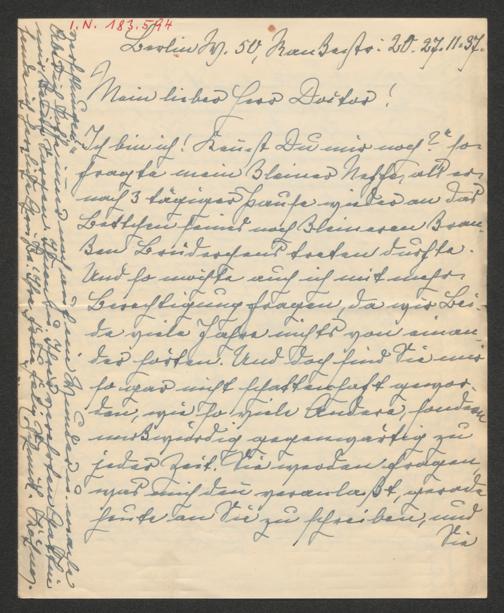 I.N. 183.594
Berlin W. 50, Ranke str. 20. 27.11.37.
Mein lieber Herr Doctor!
Ich bin ich! Kennst Du mir noch?" so
fragte mein kleiner Neffe, als er
nach 3 tägiger Pause wieder an das
Bettchen seines noch kleineren kran-
ken Brüderchens treten durfte.
Und so möchte auch ich mit mehr
Berechtigung fragen, da wir Bei-
de viele Jahre nichts von einan-
der hörten. Und doch sind Sie mir
so gar nicht schattenhaft gewor-
den, wie so viele Andere, sondern
merkwürdig gegenwärtig zu
jeder Zeit. Sie werden fragen,
was mich denn veranlaßt, gerade
heute an Sie zu schreiben, und
Sie